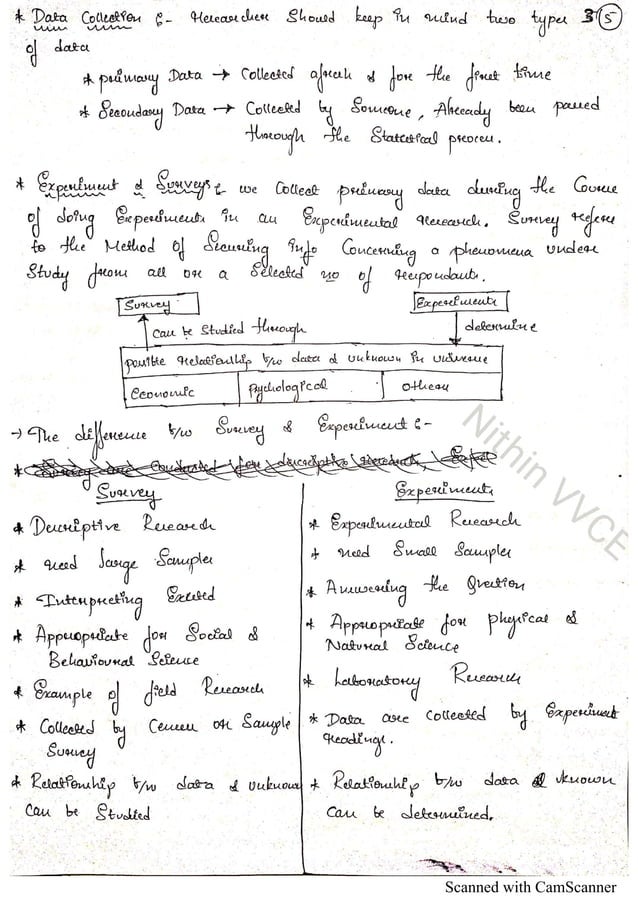 * Data Collection :- Researcher Should keep in mind two types 3 5
of data
* primary Data → Collected afresh & for the first time
* Secondary Data → Collected by Someone, Already been passed
through the Statistical process.
* Experiment & Surveys :- we Collect primary data during the Course
of doing Experiments in an Experimental Research. Survey refers
to the Method of Securing info Concerning a phenomena under
Study from all or a Selected no of respondents.
Survey
Experiments
can be Studied through
determine
possible relationship b/w data & unknown in universe
Economic
Psychological
others
→ The difference b/w Survey & Experiment :-
Survey
Experiments
* Descriptive Research
* need large Samples
* Interpreting Existed
* Appropriate for Social &
Behavioural Science
* Example of field Research
* Collected by Census or Sample
Survey
* Relationship b/w data & unknown
Can be Studied
* Experimental Research
* need Small Samples
* Answering the Question
* Appropriate for physical &
Natural Science
* Laboratory Research
* Data are collected by Experiment
readings.
* Relationship b/w data & uknown
can be determined.
Nithin VVCE
Scanned with CamScanner